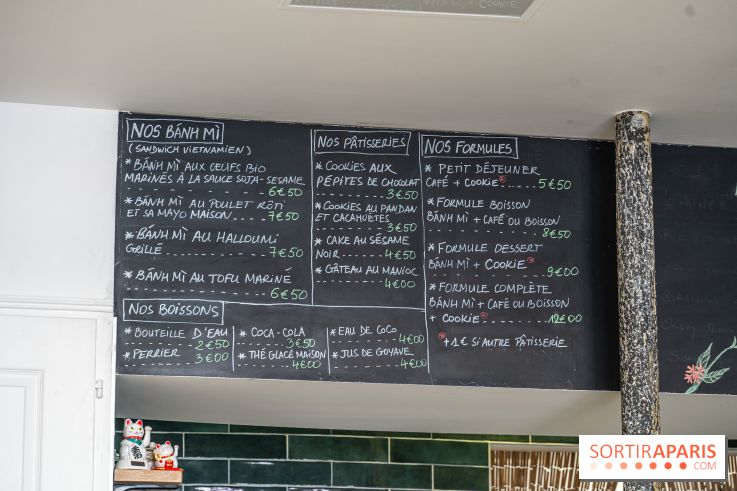 COOKIE
NOS BÁNH MÌ
(SANDWICH VIETNAMIEN)
* BÁNH MÌ AUX OEUFS BIO
MARINÉS À LA SAUCE SOJA-SESAME
6€50
* BÁNH MÌ AU POULET RÔTI
ET SA MAYO MAISON 7€50
* BÁNH MÌ AU HALLOUMI
GRILLÉ 7€50
* BÁNH MÌ AU TOFU MARINÉ
6€50
NOS PÂTISSERIES
* COOKIES AUX
PÉPITES DE CHOCOLAT
3€50
* COOKIES AU PANDAN
ET CACAHUÈTES
3€50
* CAKE AU SÉSAME
NOIR 4€50
* GÂTEAU AU MANIOC
4€00
NOS FORMULES
* PETIT DÉJEUNER
CAFÉ + COOKIE* 5€50
* FORMULE BOISSON
BÁNH MÌ + CAFÉ OU BOISSON
8€50
* FORMULE DESSERT
BÁNH MÌ + COOKIE*
9€00
* FORMULE COMPLÈTE
BÁNH MÌ + CAFÉ OU BOISSON
+ COOKIE* 12€00
*+1€ SI AUTRE PÂTISSERIE
NOS BOISSONS
* BOUTEILLE D'EAU
2€50
* PERRIER 3€00
* COCA-COLA
3€50
* THÉ GLACÉ MAISON
4€00
* EAU DE COCO
4€00
* JUS DE GOYAVE
4€00
SORTIRAPARIS
.COM